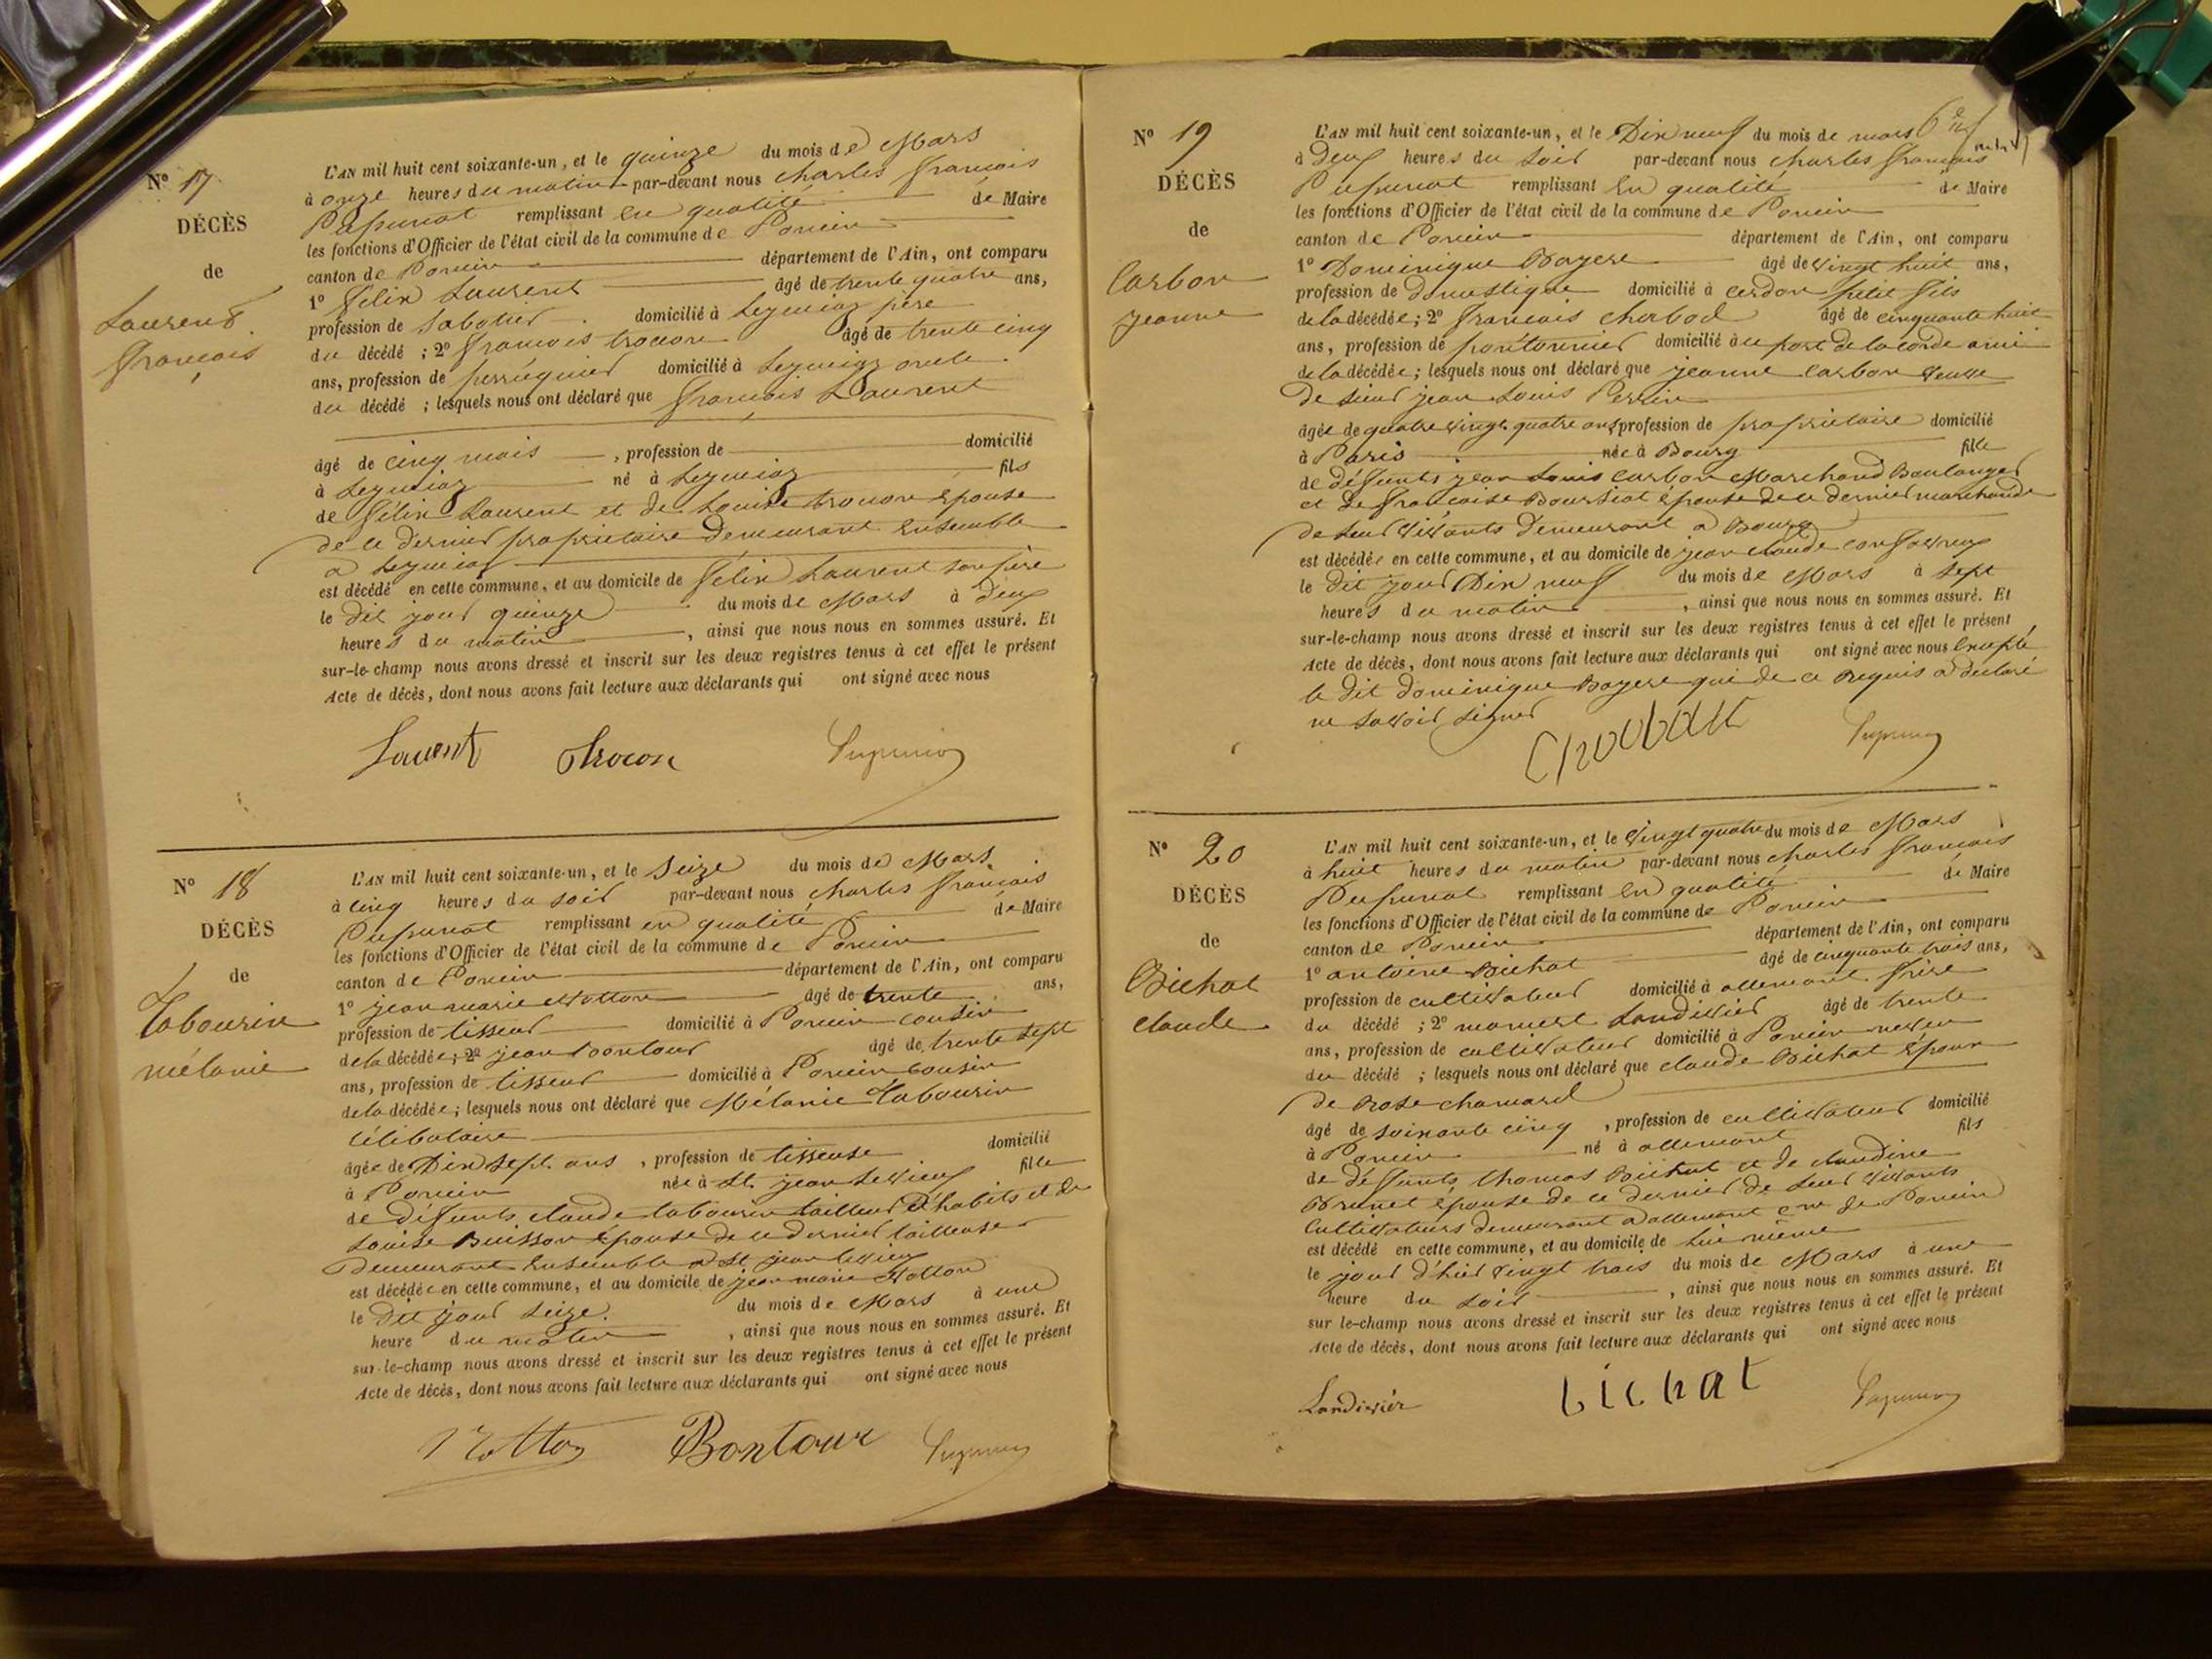 N° 17
DÉCÈS
de
Laurent
françois
L'AN mil huit cent soixante-un, et le quinze du mois de Mars
à onze heures du matin par-devant nous charles françois
remplissant en qualité de Maire
les fonctions d'Officier de l'état civil de la commune de Poncin
canton de Poncin département de l'Ain, ont comparu
1° félix Laurent âgé de trente quatre ans,
profession de Sabotier domicilié à Leymiaz père
du décédé ; 2° françois trocon âgé de trente cinq
ans, profession de perruquier domicilié à Leymiaz oncle
du décédé ; lesquels nous ont déclaré que françois Laurent
âgé de cinq mois , profession de domicilié
à Leymiaz né à Leymiaz fils
de félix Laurent et de Louise trocon épouse
de ce dernier propriétaire demeurant ensemble
a Leymiaz
est décédé en cette commune, et au domicile de félix Laurent son père
le dit jour quinze du mois de Mars à deux
heures du matin , ainsi que nous nous en sommes assuré. Et
sur-le-champ nous avons dressé et inscrit sur les deux registres tenus à cet effet le présent
Acte de décès, dont nous avons fait lecture aux déclarants qui ont signé avec nous
Laurent Trocon
N° 18
DÉCÈS
de
Tabourin
mélanie
L'AN mil huit cent soixante-un, et le Seize du mois de Mars
à cinq heures du soir par-devant nous charles françois
remplissant en qualité de Maire
les fonctions d'Officier de l'état civil de la commune de Poncin
canton de Poncin département de l'Ain, ont comparu
1° jean marie Votton âgé de trente ans,
profession de tisseur domicilié à Poncin cousin
de la décédée ; 2° jean Bontour âgé de trente sept
ans, profession de tisseur domicilié à Poncin cousin
de la décédée ; lesquels nous ont déclaré que Mélanie Tabourin
Célibataire
âgée de Dix sept ans , profession de tisseuse domicilié
à Poncin née à St jean le Vieux fille
de défunts claude tabourin tailleur d'habits et de
Louise Buisson épouse de ce dernier tailleuse
demeurant ensemble a St jean le vieux
est décédée en cette commune, et au domicile de jean marie Votton
le dit jour seize. du mois de Mars à une
heure du matin , ainsi que nous nous en sommes assuré. Et
sur-le-champ nous avons dressé et inscrit sur les deux registres tenus à cet effet le présent
Acte de décès, dont nous avons fait lecture aux déclarants qui ont signé avec nous
Votton Bontour
N° 19
DÉCÈS
de
Carbon
jeanne
L'AN mil huit cent soixante-un, et le Dix neuf du mois de mars
à deux heures du soir par-devant nous charles françois
remplissant en qualité de Maire
les fonctions d'Officier de l'état civil de la commune de Poncin
canton de Poncin département de l'Ain, ont comparu
1° Dominique Bayere âgé de vingt huit ans,
profession de domestique domicilié à cerdon petit fils
de la décédée ; 2° françois âgé de cinquante huit
ans, profession de pontonnier domicilié à au port de la corde ami
de la décédée ; lesquels nous ont déclaré que jeanne carbon veuve
de sieur jean Louis Perrin
âgée de quatre vingt quatre ans profession de propriétaire domicilié
à Paris née à Bourg fille
de défunts jean Louis carbon Marchand Boulanger
et de françoise épouse de ce dernier marchande
de leur vivants demeurant a Bourg
est décédée en cette commune, et au domicile de jean claude
le dit jour Dix neuf du mois de Mars à sept
heures du matin , ainsi que nous nous en sommes assuré. Et
sur-le-champ nous avons dressé et inscrit sur les deux registres tenus à cet effet le présent
Acte de décès, dont nous avons fait lecture aux déclarants qui ont signé avec nous Excepté
le dit dominique Bayere qui de ce requis a déclaré
ne savoir signer
N° 20
DÉCÈS
de
Bichat
claude
L'AN mil huit cent soixante-un, et le Vingt quatre du mois de Mars
à huit heures du matin par-devant nous charles françois
remplissant en qualité de Maire
les fonctions d'Officier de l'état civil de la commune de Poncin
canton de Poncin département de l'Ain, ont comparu
1° antoine Bichat âgé de cinquante trois ans,
profession de cultivateur domicilié à allement frère
du décédé ; 2° Landivier âgé de trente
ans, profession de cultivateur domicilié à Poncin neveu
du décédé ; lesquels nous ont déclaré que claude Bichat époux
de Rose chanard
âgé de soixante cinq , profession de cultivateur domicilié
à Poncin né à allement fils
de défunts thomas Bichat et de claudine
Brunet épouse de ce dernier de leur vivants
Cultivateurs demeurant a allement cne de Poncin
est décédé en cette commune, et au domicile de lui même
le jour d'hier vingt trois du mois de Mars à une
heure du soir , ainsi que nous nous en sommes assuré. Et
sur le-champ nous avons dressé et inscrit sur les deux registres tenus à cet effet le présent
Acte de décès, dont nous avons fait lecture aux déclarants qui ont signé avec nous
Landivier bichat